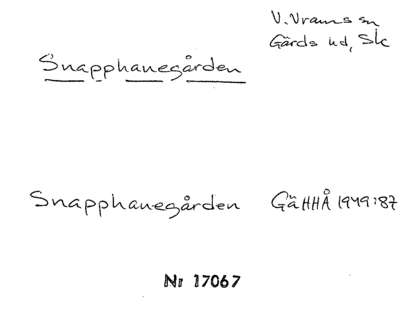 V. Vrams sn
Gärds hd, Sk
Snapphanegården
Snapphanegården GäHHÅ 1949:87
Nr 17067